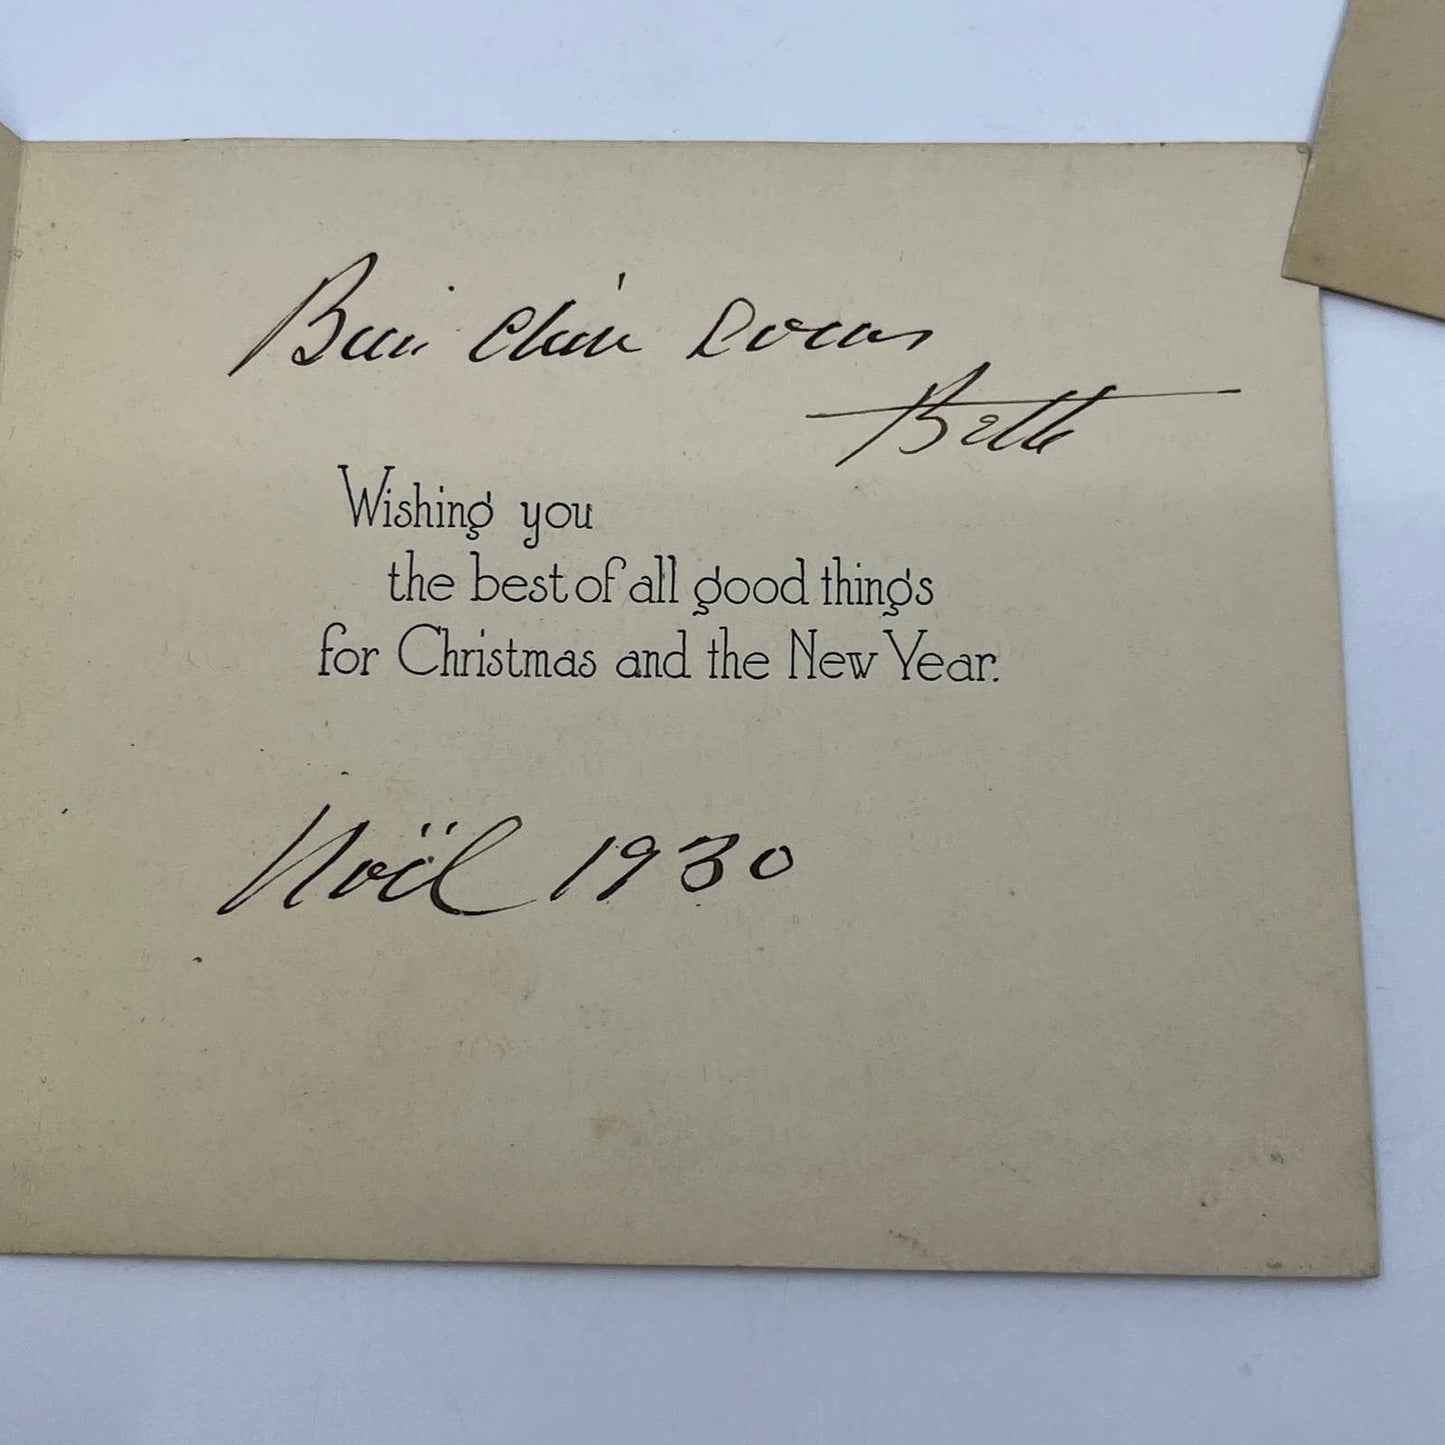 Bien chère
Wishing you
the best of all good things
for Christmas and the New Year.
Noël 1930